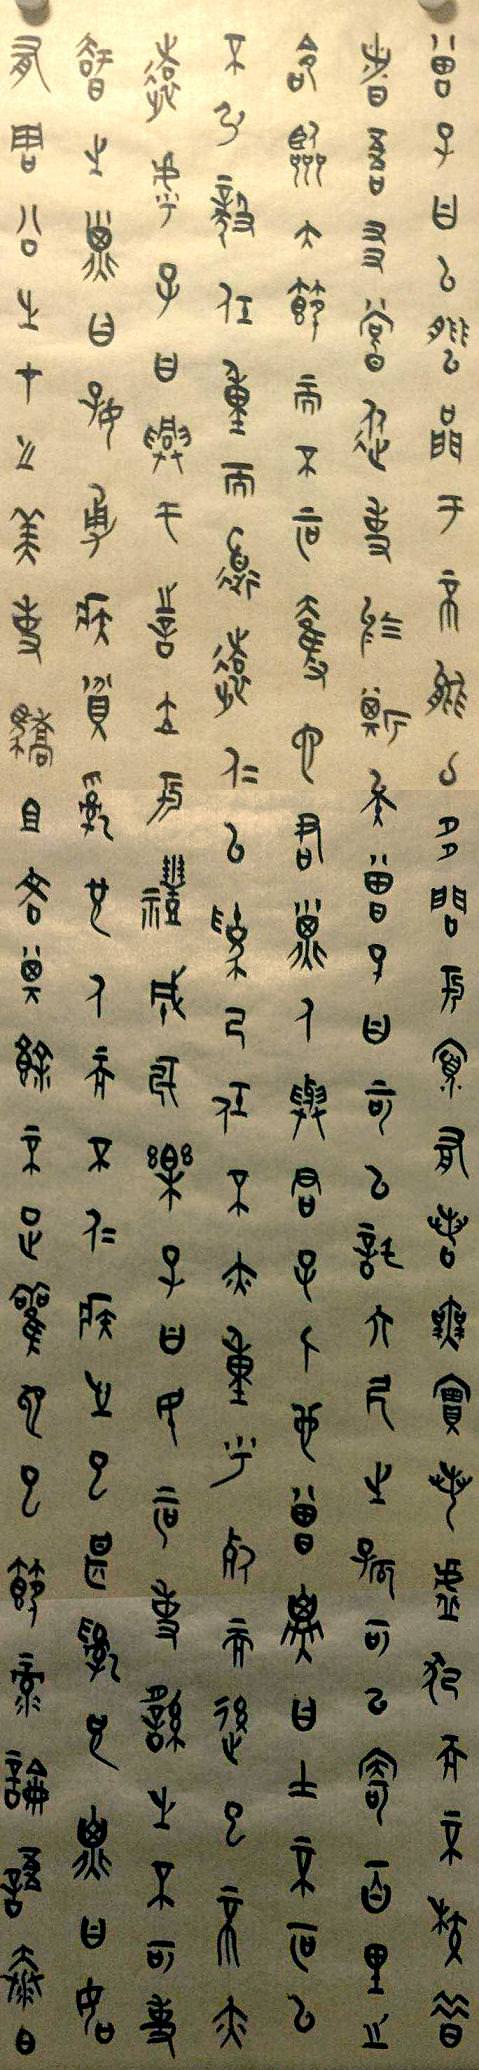 曾子曰以能問于不能以多問於寡有若無實若虛犯而不校昔
者吾友嘗從事於斯矣曾子曰可以託六尺之孤可以寄百里之
命臨大節而不可奪也君子人與君子人也曾子曰士不可以
不弘毅任重而道遠仁以為己任不亦重乎死而後已不亦
遠乎子曰興于詩立於禮成於樂子曰民可使由之不可使
知之子曰好勇疾貧亂也人而不仁疾之已甚亂也子曰如
有周公之才之美使驕且吝其餘不足觀也已節錄論語泰伯